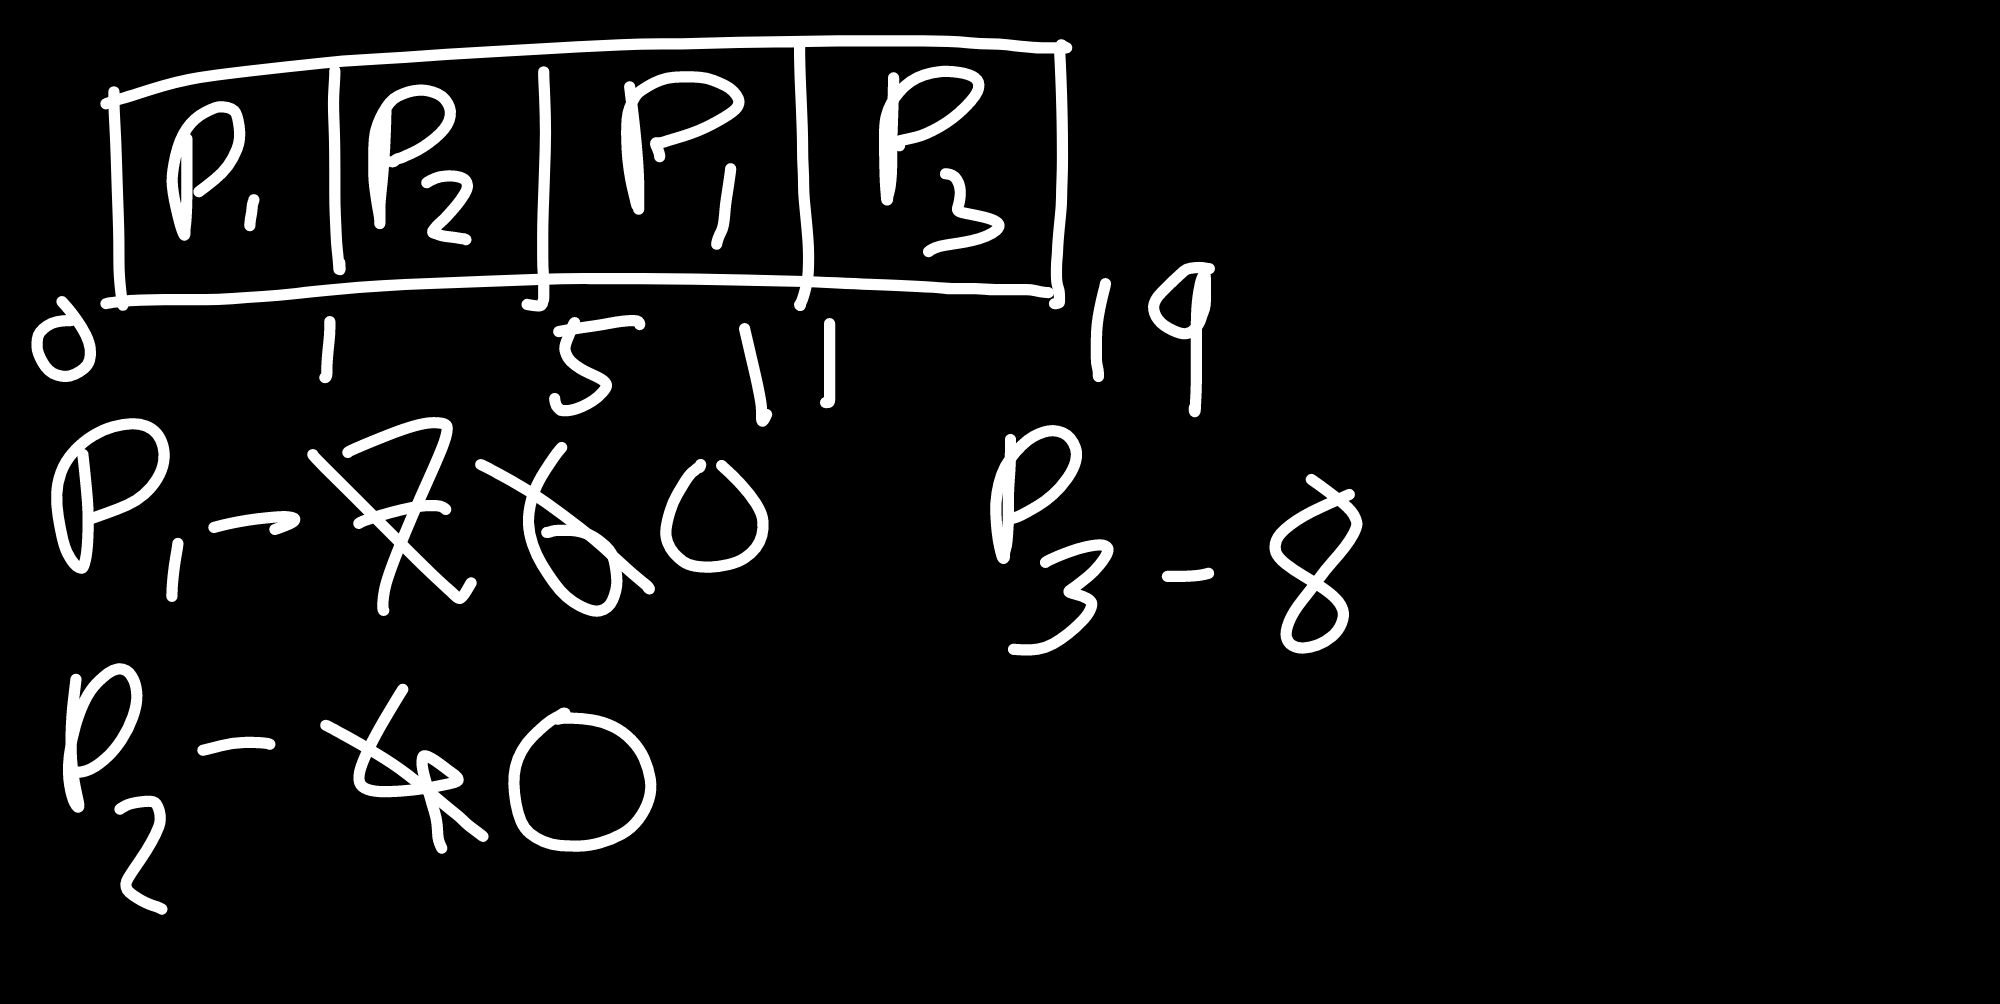 P1 P2 P1 P3
0 1 5 11 19
P1 - 7 6 0 P3 - 8
P2 - 4 0